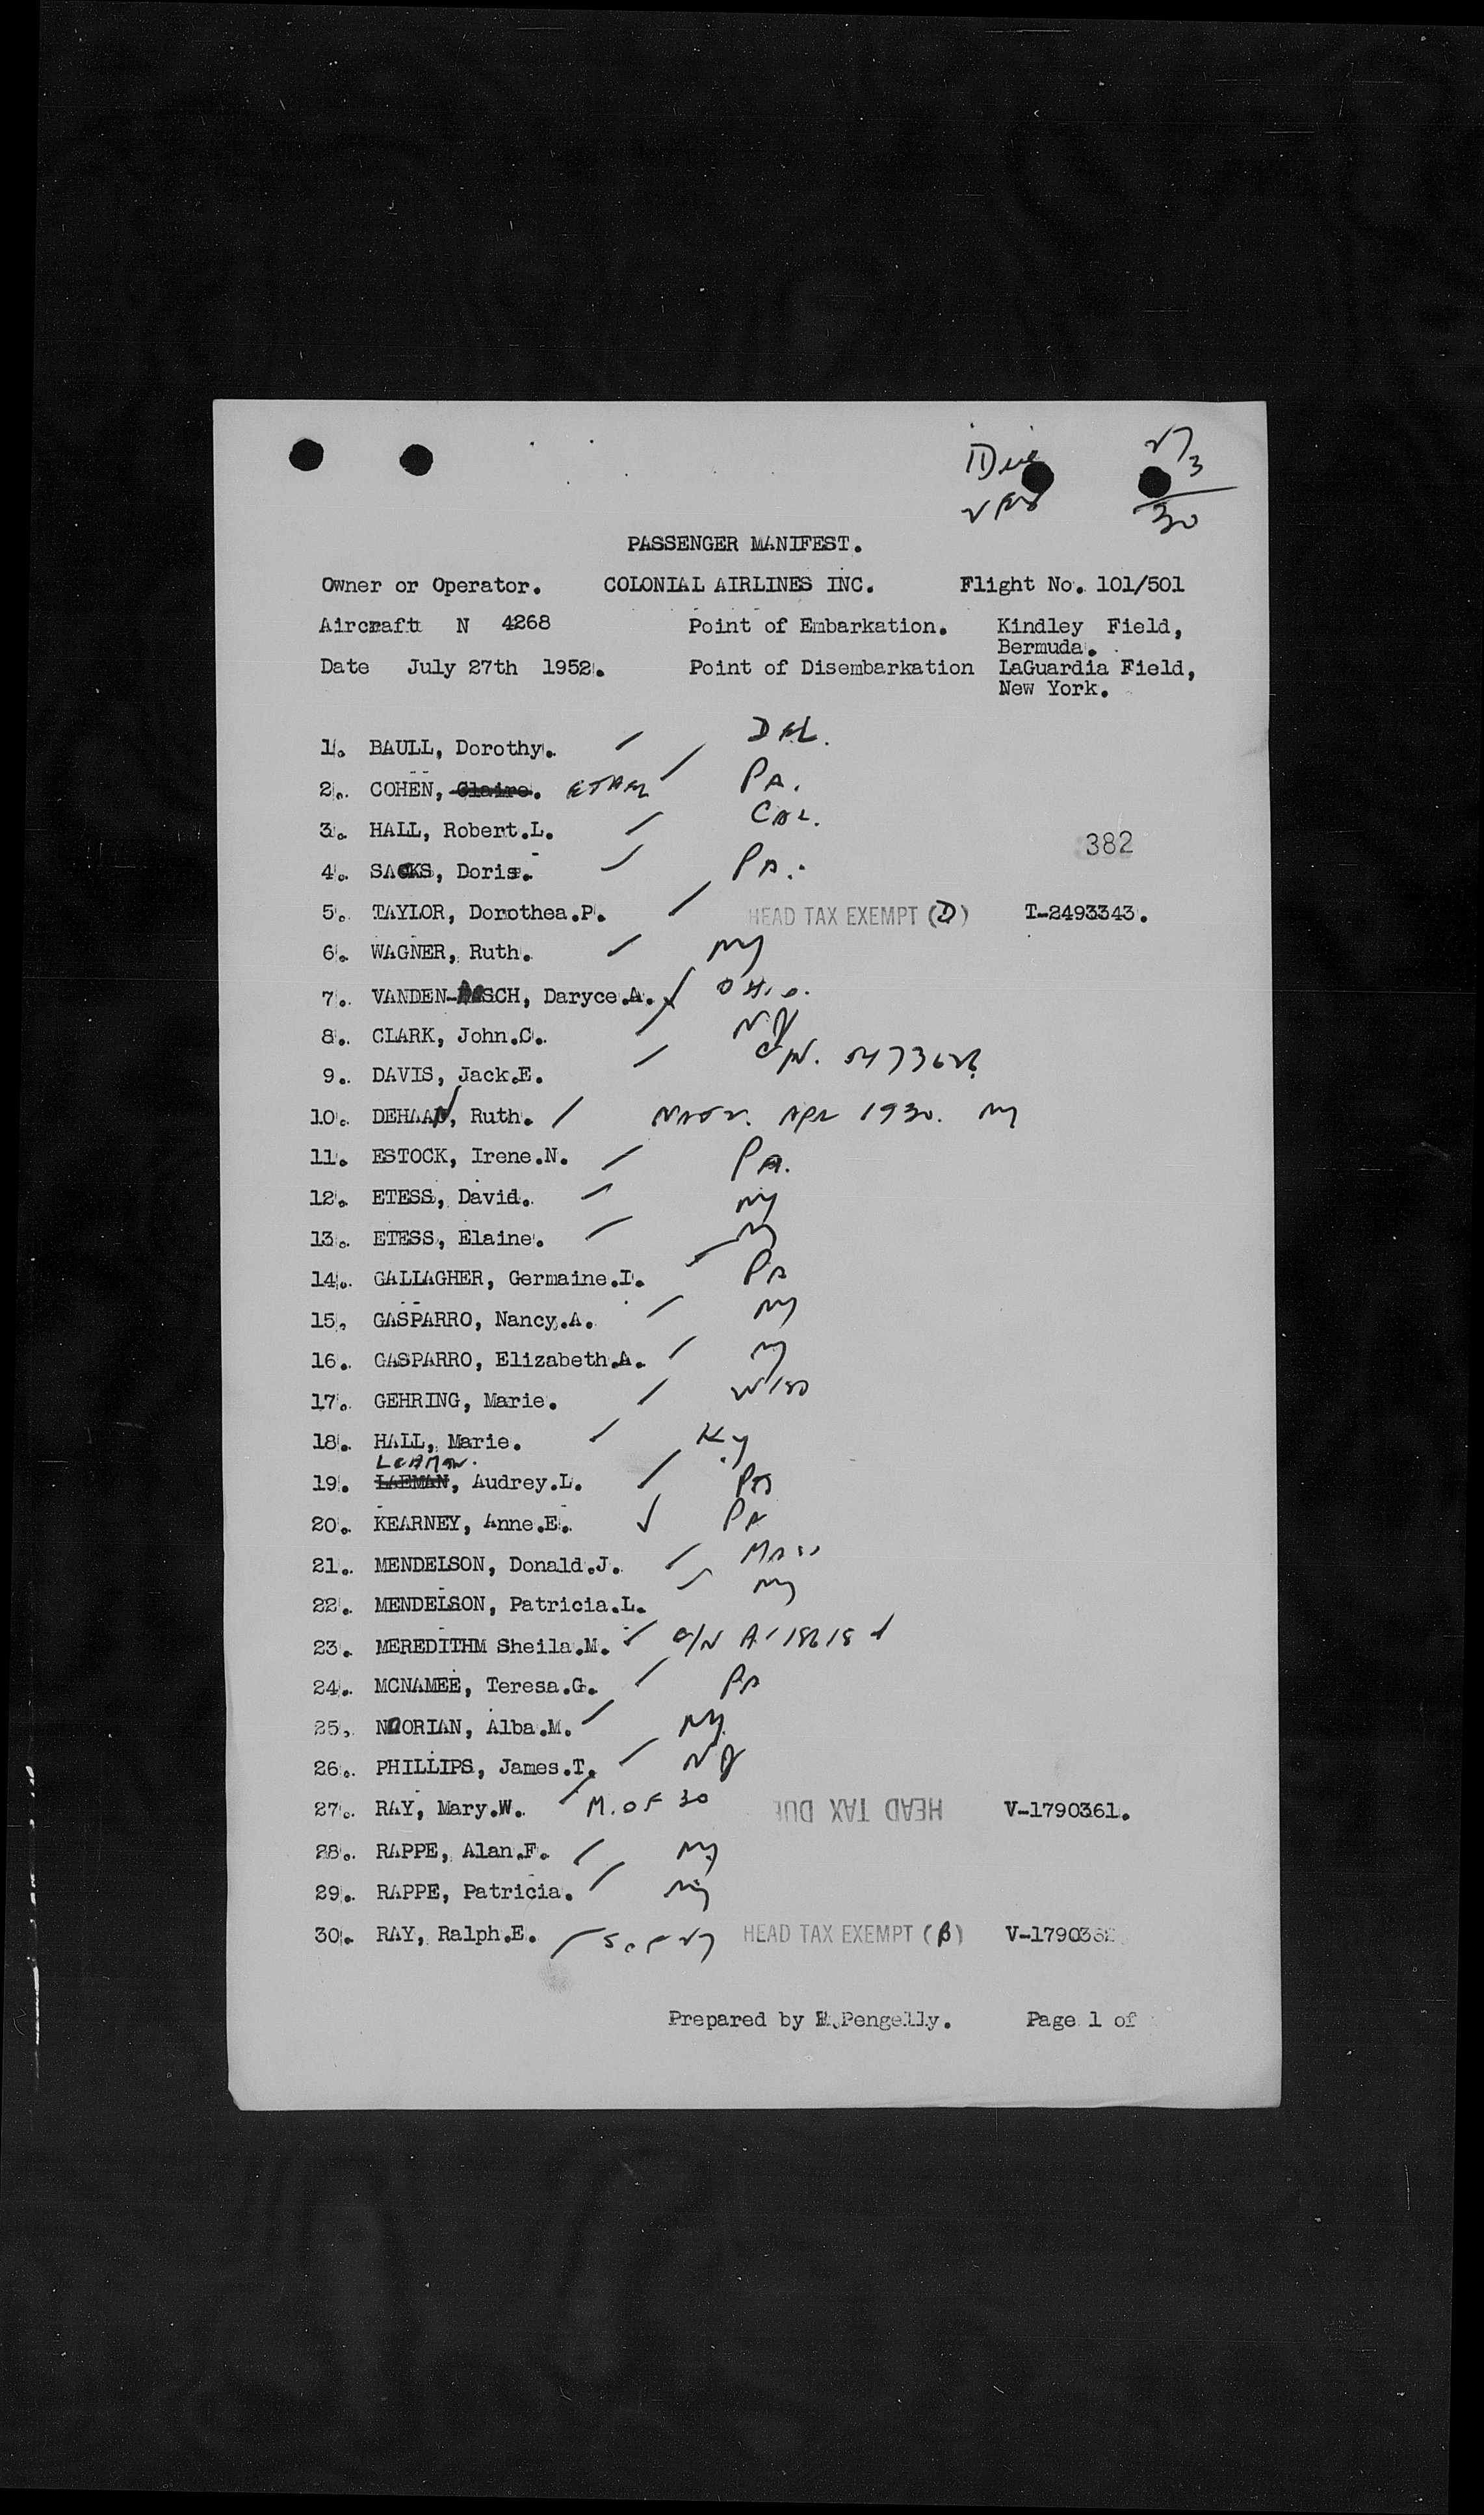 27
3
30
PASSENGER MANIFEST.
Owner or Operator. COLONIAL AIRLINES INC. Flight No. 101/501
Aircraft N 4268 Point of Embarkation. Kindley Field,
Bermuda.
Date July 27th 1952. Point of Disembarkation LaGuardia Field,
New York.
1. BAULL, Dorothy. DEL.
2. COHEN, Claire. ETHEL PA.
3. HALL, Robert.L. CAL.
382
4. SACKS, Doris. PA.
5. TAYLOR, Dorothea.P. HEAD TAX EXEMPT (D) T-2493343.
6. WAGNER, Ruth. NY
7. VANDEN-BOSCH, Daryce.A. OHIO.
8. CLARK, John.C. NJ
9. DAVIS, Jack.E. C/N.
10. DEHAAN, Ruth. APR 1930. NY
11. ESTOCK, Irene.N. PA.
12. ETESS, David. NY
13. ETESS, Elaine. NY
14. GALLAGHER, Germaine.I. PA
15. GASPARRO, Nancy.A. NY
16. GASPARRO, Elizabeth.A. NY
17. GEHRING, Marie. WISC
18. HALL, Marie. KY
LEHMAN.
19. LAEMAN, Audrey.L. PA
20. KEARNEY, Anne.E. PA
21. MENDELSON, Donald.J. MASS
22. MENDELSON, Patricia.L. NY
23. MEREDITHM Sheila.M. C/N
24. MCNAMEE, Teresa.G. PA
25. NOORIAN, Alba.M. NY
26. PHILLIPS, James.T. NJ
27. RAY, Mary.W. M. OF 30 HEAD TAX DUE V-1790361.
28. RAPPE, Alan.F. NY
29. RAPPE, Patricia. NY
30. RAY, Ralph.E. S. OF 27 HEAD TAX EXEMPT (B) V-1790362
Prepared by E.Pengelly. Page 1 of